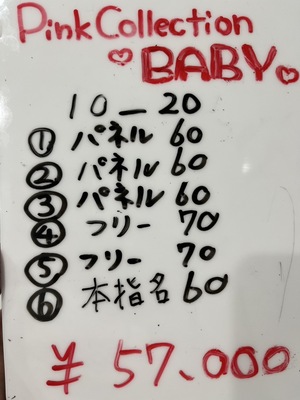 Pink Collection
BABY
10-20
① パネル 60
② パネル 60
③ パネル 60
④ フリー 70
⑤ フリー 70
⑥ 本指名 60
¥57、000